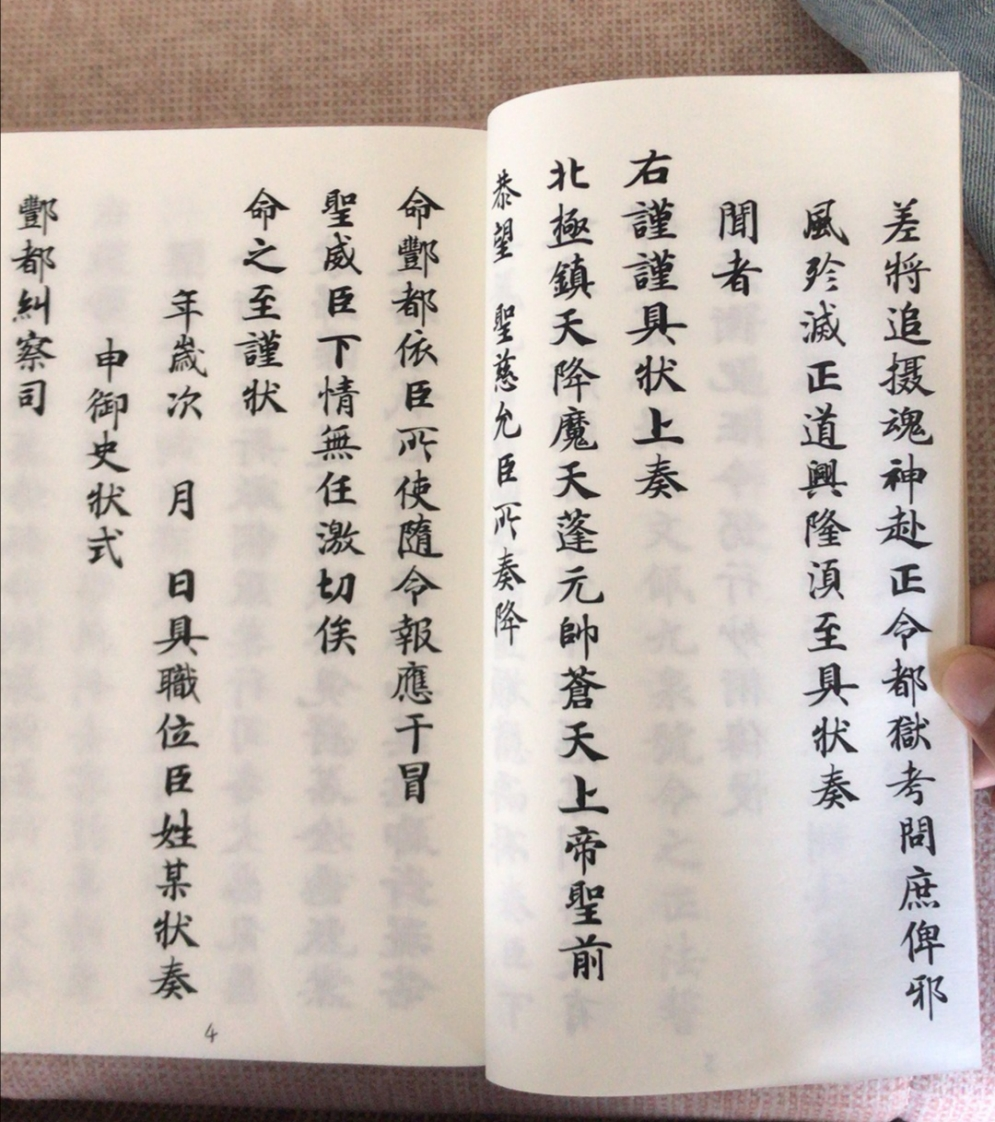 差將追摄魂神赴正令都獄考問庶俾邪
風殄滅正道興隆湏至具狀奏
聞者
右謹謹具狀上奏
北極鎮天降魔天蓬元帥蒼天上帝聖前
恭望 聖慈允臣所奏降
命酆都依臣所使隨令報應干冒
聖威臣下情無任激切俟
命之至謹狀
年歲次 月 日具職位臣姓某狀奏
申御史狀式
酆都糾察司
4